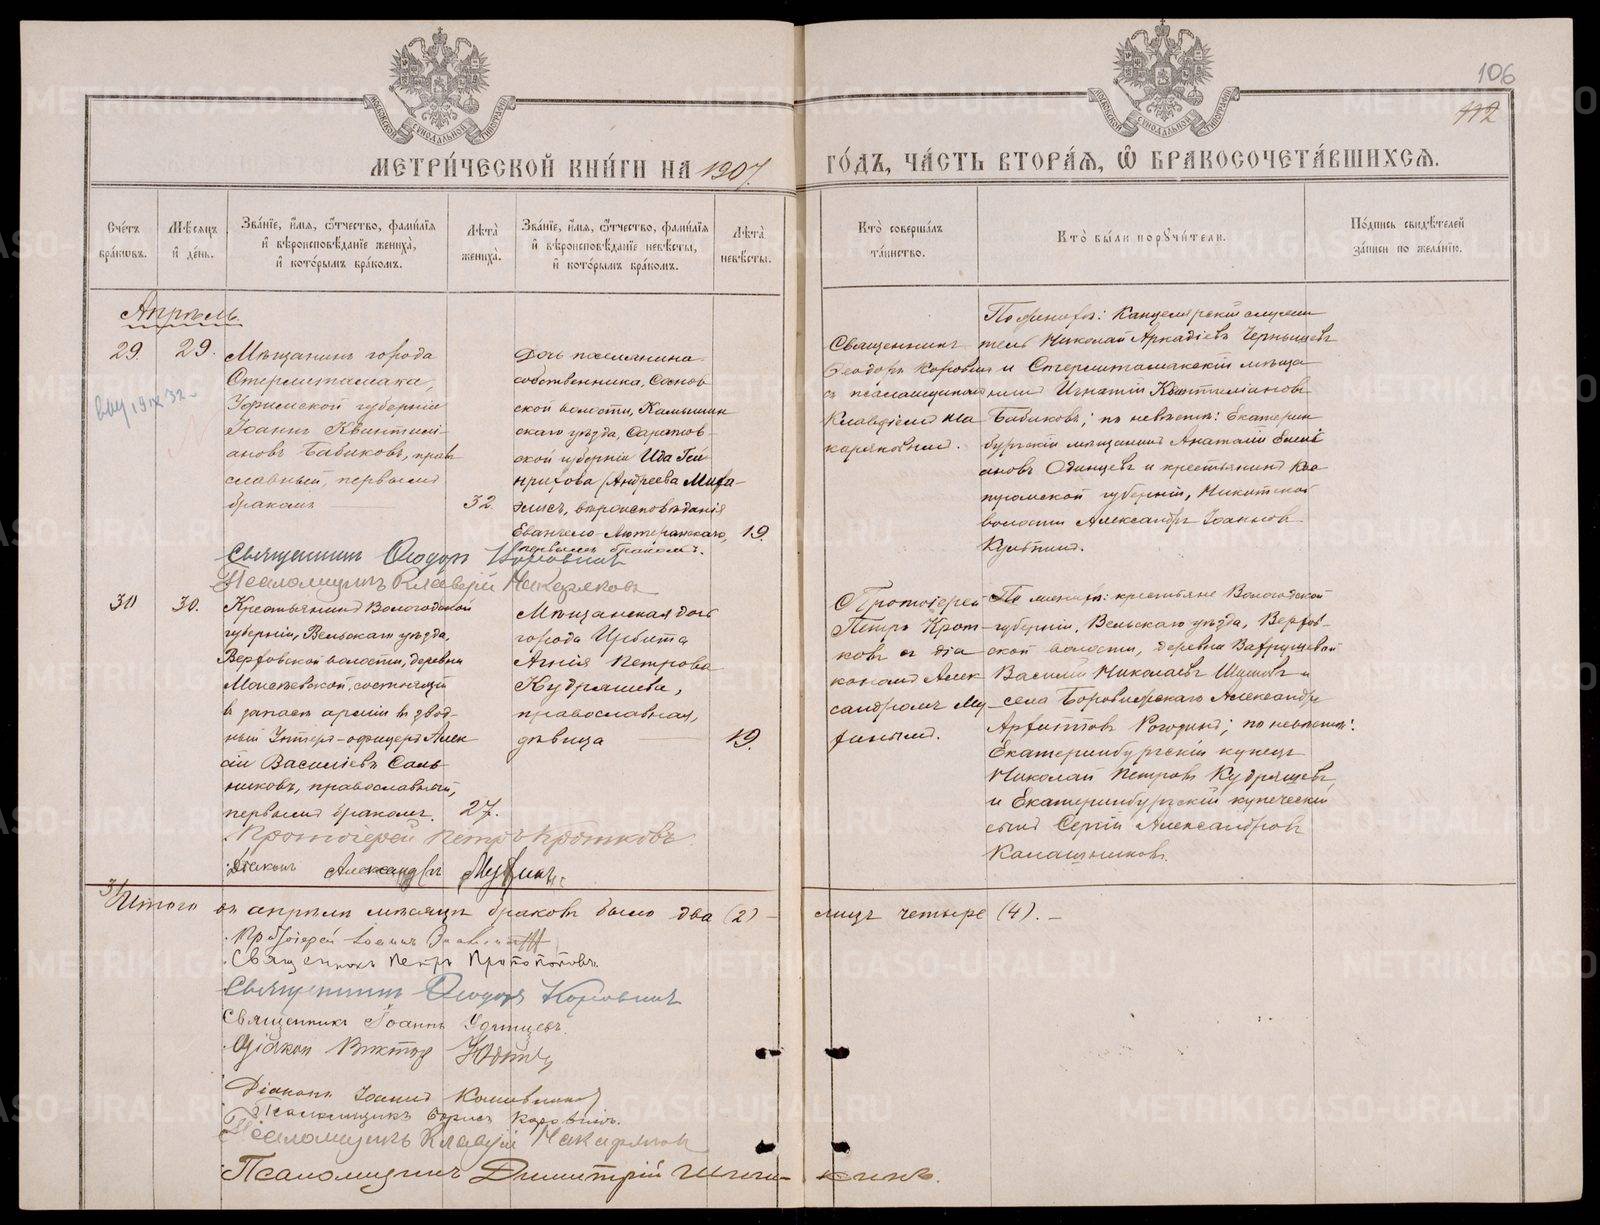 106
112
МЕТРИ́ЧЕСКОЙ КНИ́ГИ НА 1907.
ГО́ДЪ, ЧА́СТЬ ВТОРА́Я, Ѽ БРАКОСОЧЕТА́ВШИХСЯ.
Сче́тъ бра́кѡвъ.
Мѣ́сяцъ и҆ де́нь.
Зва́нїе, и҆́мя, ѻ҆́тчество, фами́лїя
и҆ вѣроисповѣ́данїе жениха̀,
и҆ кото́рымъ бра́комъ.
Лѣ́та жениха̀.
Зва́нїе, и҆́мя, ѻ҆́тчество, фами́лїя
и҆ вѣроисповѣ́данїе невѣ́сты,
и҆ кото́рымъ бра́комъ.
Лѣ́та невѣ́сты.
Кто̀ соверша́лъ та́инство.
Кто̀ бы́ли порꙋчи́тели.
По́дпись свидѣ́телей за́писи по жела́нїю.
Апрѣль
29.
29.
Мѣщанинъ города
Стерлитамака,
Уфимской губерніи
Іоаннъ Квинтилі-
ановъ Бабиковъ, право
славный, первымъ
бракомъ
32.
Дочь поселянина
собственника, Соснов
ской волости, Камышин
скаго уѣзда, Саратов-
ской губерніи Ида Ген
рихова (Андреева)
вѣроисповѣданія
Евангело Лютеранскаго,
первымъ бракомъ.
19.
Священникъ
Ѳеодоръ Коровинъ
съ псаломщикомъ
Клавдіемъ Ма
каряковымъ.
По жениху: Канцелярскій служи
тель Николай Аркадіевъ Чернышевъ
и Стерлитамакскій мѣща
нинъ Игнатій Квинтиліановъ
Бабиковъ; по невѣстѣ: Екатерин
бургскій мѣщанинъ Анатолій Емелі
ановъ Одинцевъ и крестьянинъ Ко
стромской губерніи, Никитской
волости Александръ Іоанновъ
Священникъ Ѳеодоръ Коровинъ
Псаломщикъ Клавдій Макаряковъ
30
30.
Крестьянинъ Вологодской
губерніи, Вельскаго уѣзда,
Верховской волости, деревни
состоящій
въ запасѣ арміи взвод-
ный Унтеръ-офицеръ Алек
сій Василіевъ Саль
никовъ, православный,
первымъ бракомъ.
27.
Мѣщанская дочь
города Ирбита
Агнія Петрова
Кудряшева,
православная,
дѣвица
19.
Протоіерей
Петръ Крот-
ковъ съ діа
кономъ Алек
сандромъ Му
хинымъ.
По жениху: крестьяне Вологодской
губерніи, Вельскаго уѣзда, Верхов-
ской волости, деревни
Василій Николаевъ и
села Александръ
Рогодинъ; по невѣстѣ:
Екатеринбургскій купецъ
Николай Петровъ Кудряшевъ
и Екатеринбургскій купеческій
сынъ Сергій Александровъ
Калашниковъ.
Протоіерей Петръ Кротковъ.
Діаконъ Александръ Мухинъ
31
Итого въ апрѣлѣ мѣсяцѣ браковъ было два (2) – лицъ четыре (4). –
Протоіерей Іоаннъ
Священникъ Петръ Протопоповъ.
Священникъ Ѳеодоръ Коровинъ
Священникъ Іоаннъ Удинцевъ.
Діаконъ Викторъ
Діаконъ Іоаннъ
Псаломщикъ Борисъ Коровинъ.
Псаломщикъ Клавдій Макаряковъ
Псаломщикъ Димитрій Шишкинъ.